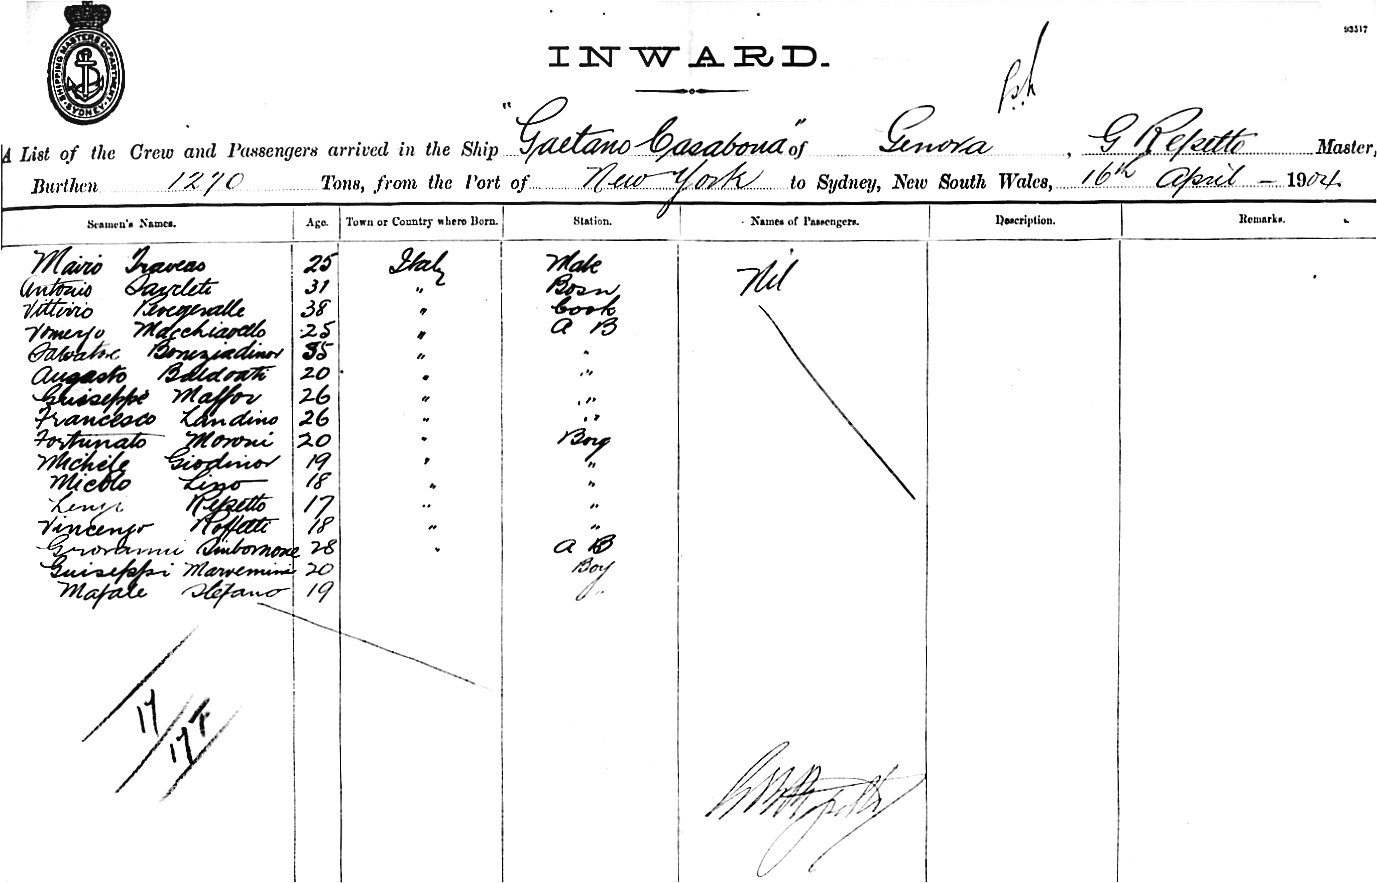 93517
SHIPPING MASTERS DEPARTMENT. SYDNEY
INWARD.
A List of the Crew and Passengers arrived in the Ship "Gaetano Casabona" of Genova, G Repetto Master,
Burthen 1270 Tons, from the Port of New York to Sydney, New South Wales, 16th April - 1904
Seamen's Names. Age. Town or Country where Born. Station. Names of Passengers. Description. Remarks.
Mario Traveas 25 Italy Mate Nil
Antonio 31 " Bosn
Vittivio 38 " Cook
Macchiavello 25 " A B
Salvatre 35 " "
Augasto 20 " "
Guiseppe Maffor 26 " "
Francesco Landino 26 " "
Fortunato Moroni 20 " Boy
Michele Giodinor 19 " "
Micolo Lino 18 " "
Repetto 17 " "
Vincenzo Roffetti 18 " "
Giovanni 28 " A B
Guiseppi 20 Boy
Mafale Stefano 19 "
17
17